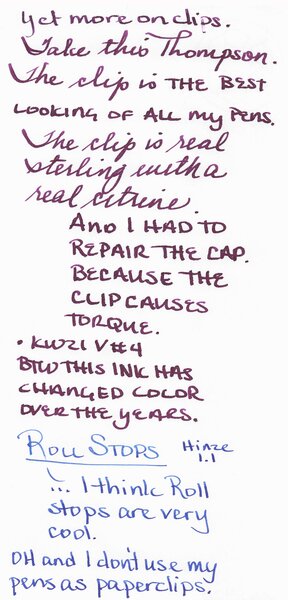 yet more on clips.
Take this Thompson.
The clip is THE BEST
LOOKING OF ALL my PENS.
The clip is real
sterling with a
real citrine.
AND I HAD TO
REPAIR THE CAP.
BECAUSE THE
CLIP CAUSES
TORQUE.
• KWZI V#4
BTW THIS INK HAS
CHANGED COLOR
OVER THE YEARS.
ROLL STOPS Hinze
1.1
... I think Roll
stops are very
cool.
OH and I don't use my
pens as paperclips.